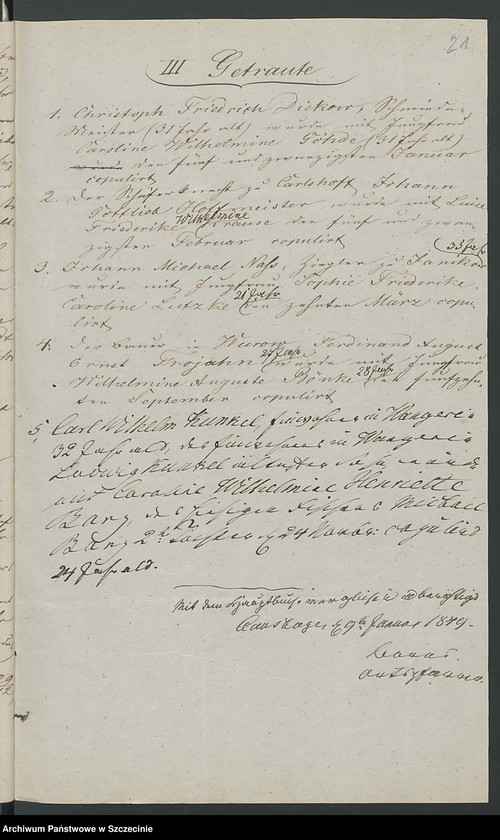 21
III Getraute
1. Christoph Friedrich Dickow, Schmiede-
Meister (31 Jahr alt) wurde mit Jungfrau
Caroline Wilhelmine Göhde (31 Jahr alt)
den fünf und zwanzigsten Januar
copulirt
2. Der Schäferknecht zu Carlshoff, Johann
Gottlieb Hoffmeister wurde mit Luise
Friederike Wilhelmine Krause den fünf und zwan-
zigsten Februar copulirt
35 Jahr
3. Johann Michael Nass, Ziegler zu Janikow
wurde mit Jungfrau Sophie Friederike
Caroline Lietzke 21 Jahr den zehnten März copu-
lirt
4. Der Bauer in Wurow Ferdinand August
Ernst Trojahn 24 Jahr wurde mit Jungfrau
Wilhelmine Auguste Bönke 28 Jahr den funfzehn-
ten September copulirt
5, Carl Wilhelm Kunkel, in Wangerin
32 Jahr alt, des in Wangerin
Ludwig Kunkel ältester Sohn, wurde
mit Caroline Wilhelmine Henriette
Banz, des hiesigen Fischers Michael
Banz 2te Tochter, d 24 Novbr: copulirt
24 Jahr alt.
Mit dem verglichen
d 9ten Januar 1849.